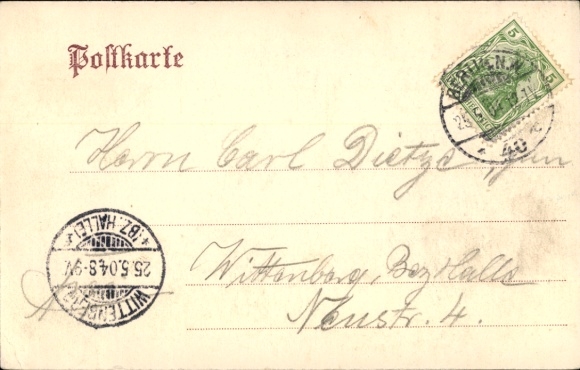 Postkarte
5 5
BERLIN.N.
40
Herrn Carl Dietze, jun
WITTENBERG
25.5.04.8-9V.
*(BZ.HALLE)*
Wittenberg, Bez Halle
Neustr. 4.